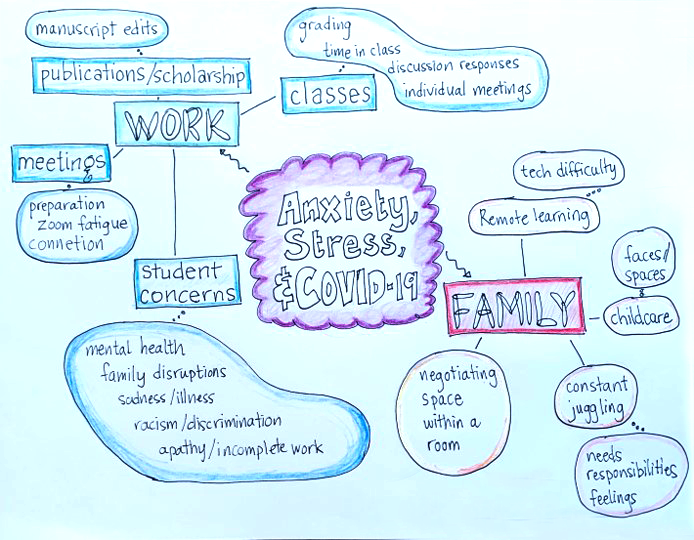 manuscript edits
publications/scholarship
WORK
meetings
preparation
zoom fatigue
connetion
classes
grading
time in class
discussion responses
individual meetings
student
concerns
mental health
family disruptions
sadness/illness
racism/discrimination
apathy/incomplete work
Anxiety,
Stress,
& COVID-19
FAMILY
tech difficulty
Remote learning
faces/
spaces
childcare
negotiating
space
within a
room
constant
juggling
needs
responsibilities
feelings